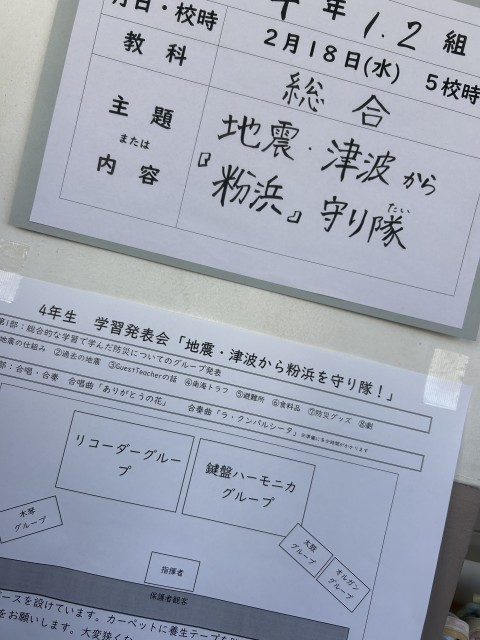 年 1.2 組
月日・校時 2月18日(水) 5校時
教科 総合
主題
または
内容
地震・津波から
『粉浜』守り隊
たい
4年生 学習発表会「地震・津波から粉浜を守り隊!」
第1部:総合的な学習で学んだ防災についてのグループ発表
地震の仕組み ②過去の地震 ③GuestTeacherの話 ④南海トラフ ⑤避難所 ⑥食料品 ⑦防災グッズ ⑧劇
部:合唱・合奏 合唱曲「ありがとうの花」 合奏曲「ラ・クンパルシータ」※準備に多少時間がかかります
リコーダーグルー
プ
鍵盤ハーモニカ
グループ
木琴
グループ
太鼓
グループ
オルガン
グループ
指揮者
保護者観客
ースを設けています。カーペットに養生テープを
をお願いします。大変狭く